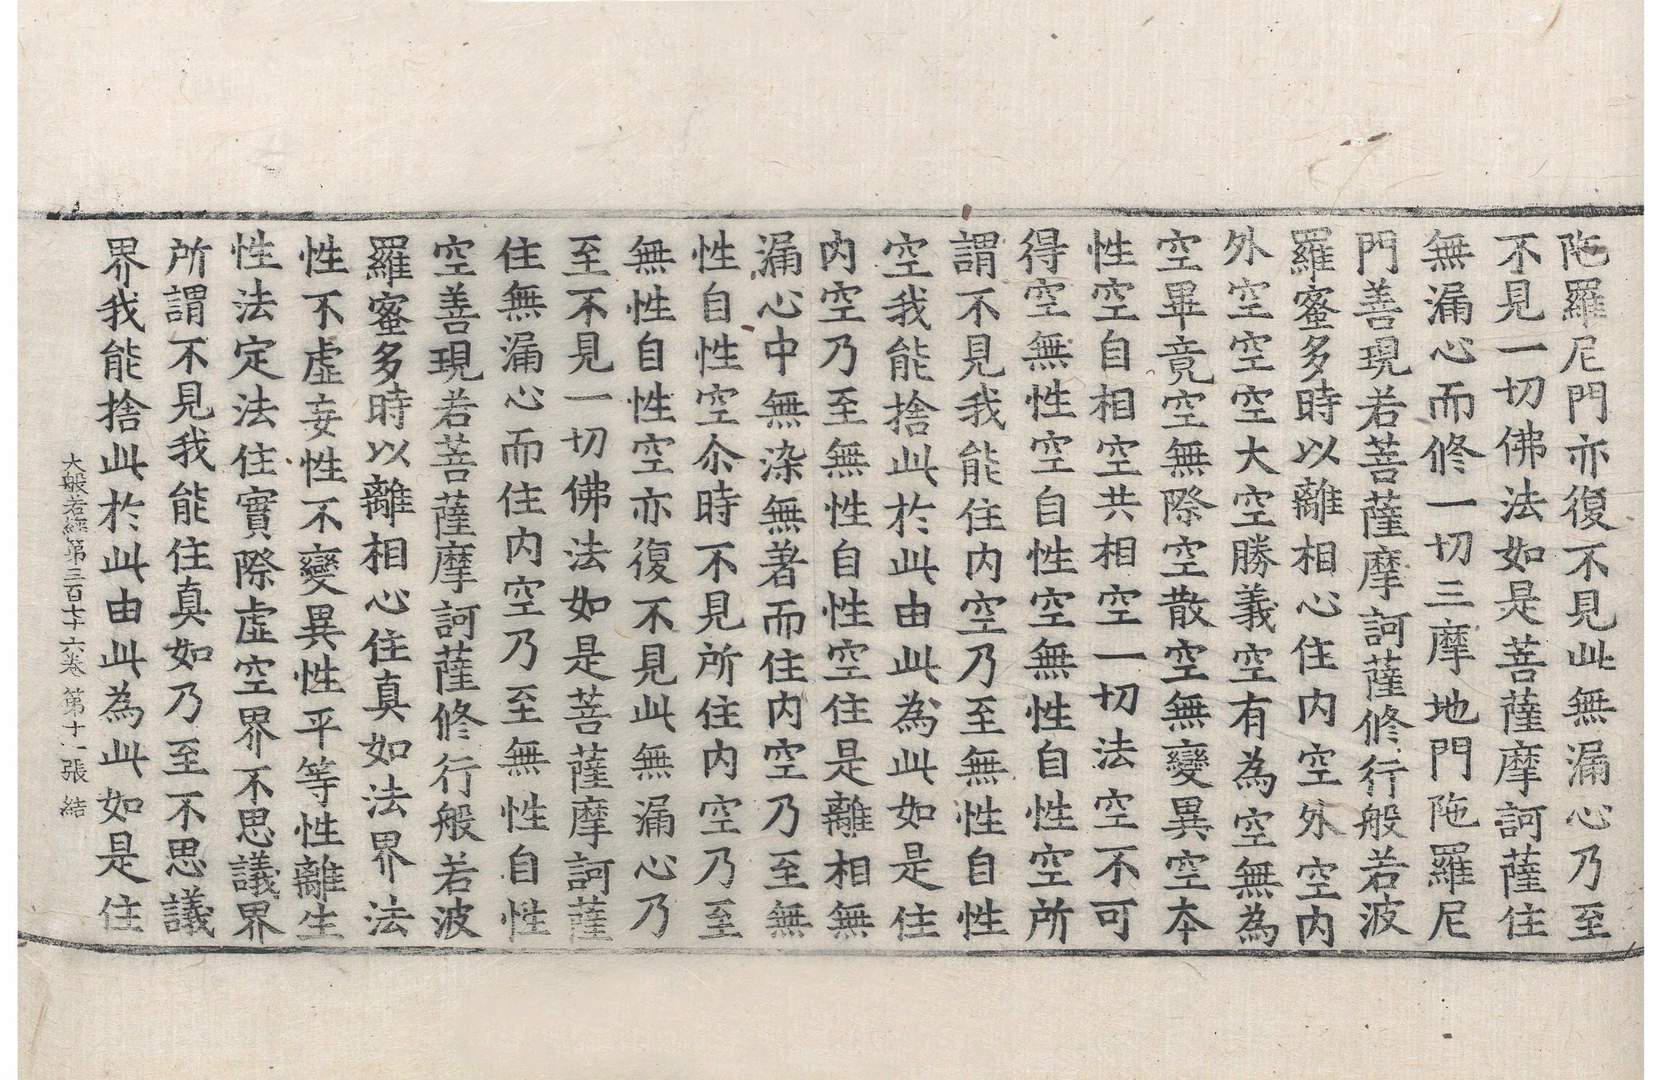 陁羅尼門亦復不見此無漏心乃至
不見一切佛法如是菩薩摩訶薩住
無漏心而修一切三摩地門陁羅尼
門善現若菩薩摩訶薩修行般若波
羅蜜多時以離相心住内空外空内
外空空空大空勝義空有為空無為
空畢竟空無際空散空無變異空本
性空自相空共相空一切法空不可
得空無性空自性空無性自性空所
謂不見我能住内空乃至無性自性
空我能捨此於此由此為此如是住
内空乃至無性自性空住是離相無
漏心中無染無著而住内空乃至無
性自性空尒時不見所住内空乃至
無性自性空亦復不見此無漏心乃
至不見一切佛法如是菩薩摩訶薩
住無漏心而住内空乃至無性自性
空善現若菩薩摩訶薩修行般若波
羅蜜多時以離相心住真如法界法
性不虛妄性不變異性平等性離生
性法定法住實際虛空界不思議界
所謂不見我能住真如乃至不思議
界我能捨此於此由此為此如是住
大般若經第三百七十六卷 第十一張 結